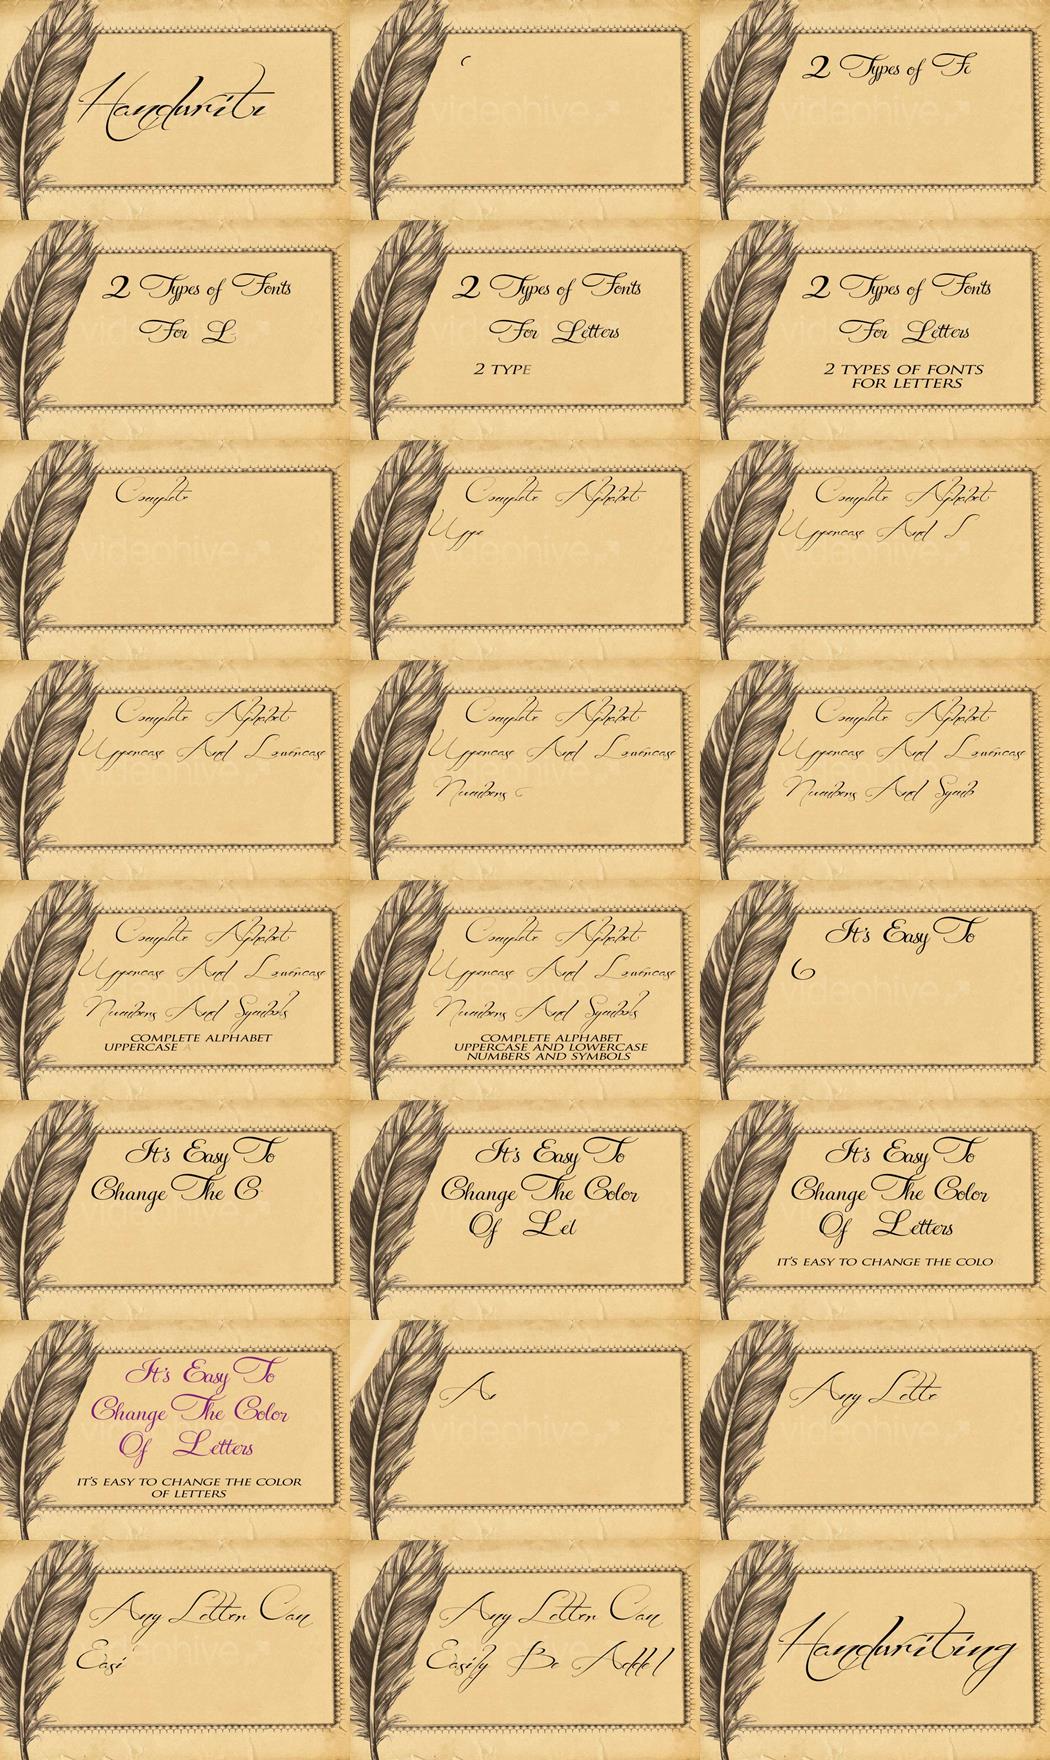 Handwriti
2 Types of Fo
2 Types of Fonts
For L
2 Types of Fonts
For Letters
2 TYPE
2 Types of Fonts
For Letters
2 TYPES OF FONTS
FOR LETTERS
Complete
Complete Alphabet
Uppe
Complete Alphabet
Uppercase And
Complete Alphabet
Uppercase And Lowercase
Complete Alphabet
Uppercase And Lowercase
Numbers
Complete Alphabet
Uppercase And Lowercase
Numbers And Symb
Complete Alphabet
Uppercase And Lowercase
Numbers And Symbols
COMPLETE ALPHABET
UPPERCASE A
Complete Alphabet
Uppercase And Lowercase
Numbers And Symbols
COMPLETE ALPHABET
UPPERCASE AND LOWERCASE
NUMBERS AND SYMBOLS
It's Easy To
It's Easy To
Change The C
It's Easy To
Change The Color
Of Let
It's Easy To
Change The Color
Of Letters
IT'S EASY TO CHANGE THE COLO
It's Easy To
Change The Color
Of Letters
IT'S EASY TO CHANGE THE COLOR
OF LETTERS
A
Any Lette
Any Letter Can
Easi
Any Letter Can
Easily Be Added
Handwriting
videohive